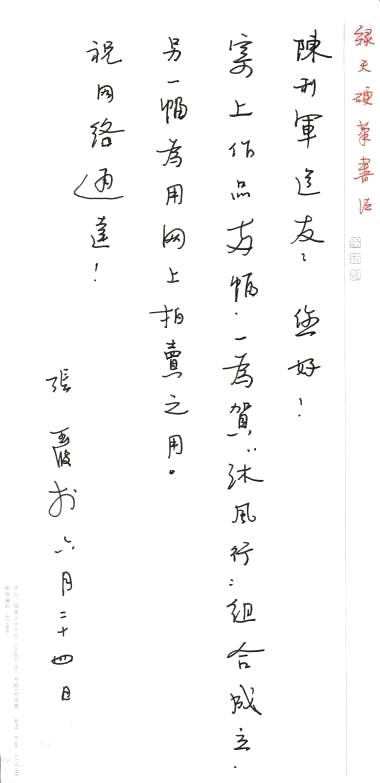 綠天硬筆書法
陳利軍道友: 您好!
寄上作品兩幅.一為賀"沐風行"組合成立.
另一幅為用网上拍賣之用。
祝网络通達!
張 於六月二十四日